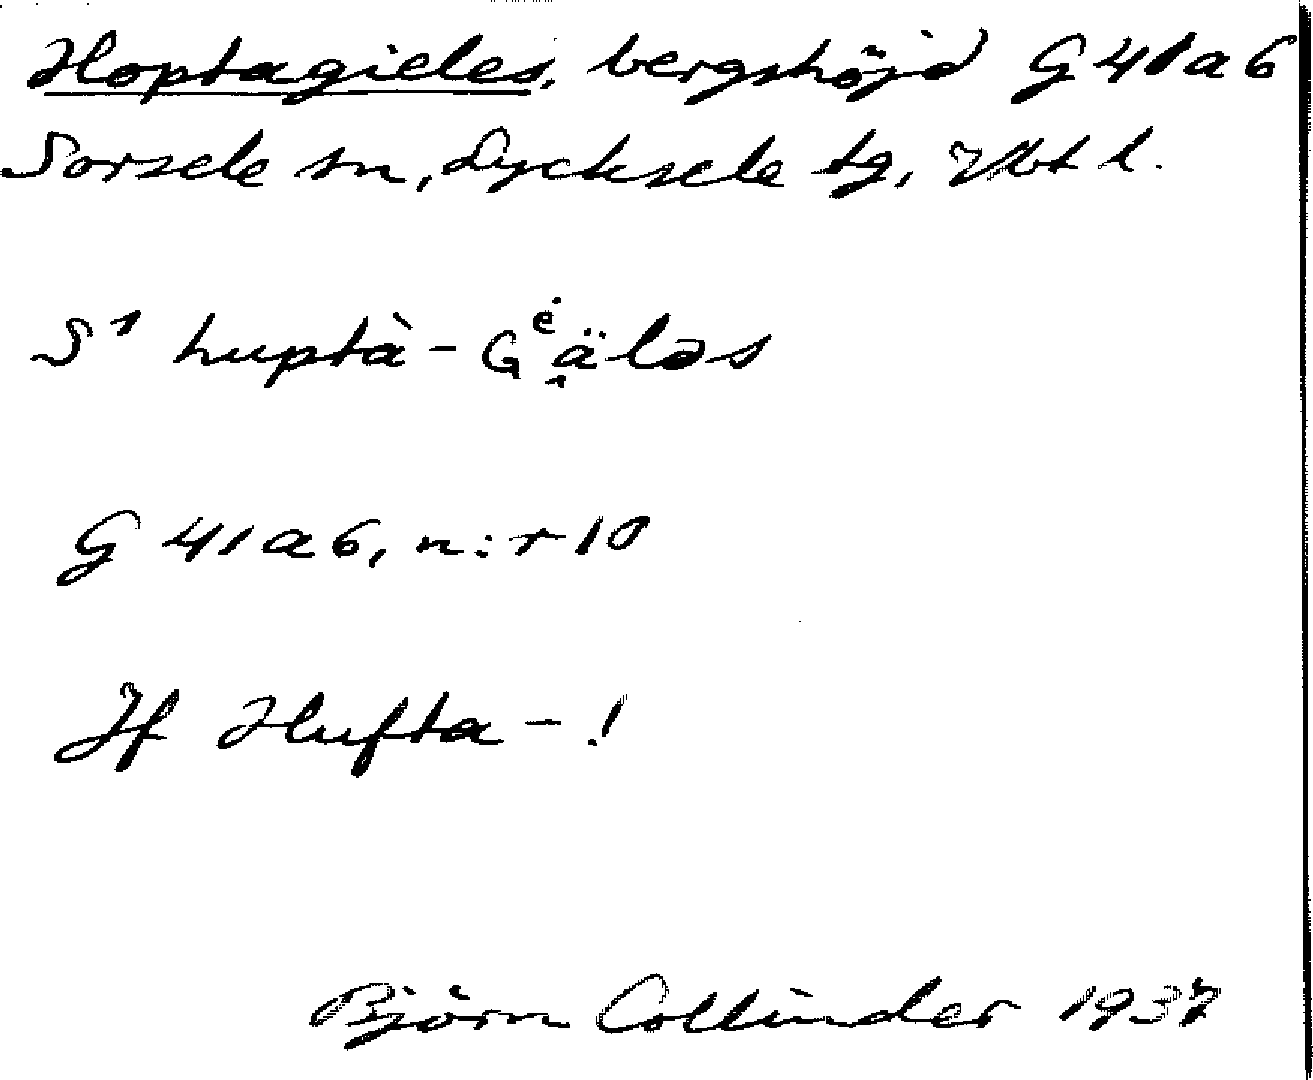 Hoptagieles, bergshöjd G 41 a 6
Sorsele sn, Lycksele tg, Vbt l.
S1 huptà - Gėä̭ləs
G 41 a 6, n:r 10
Jf Hufta - !
Björn Collinder 1937